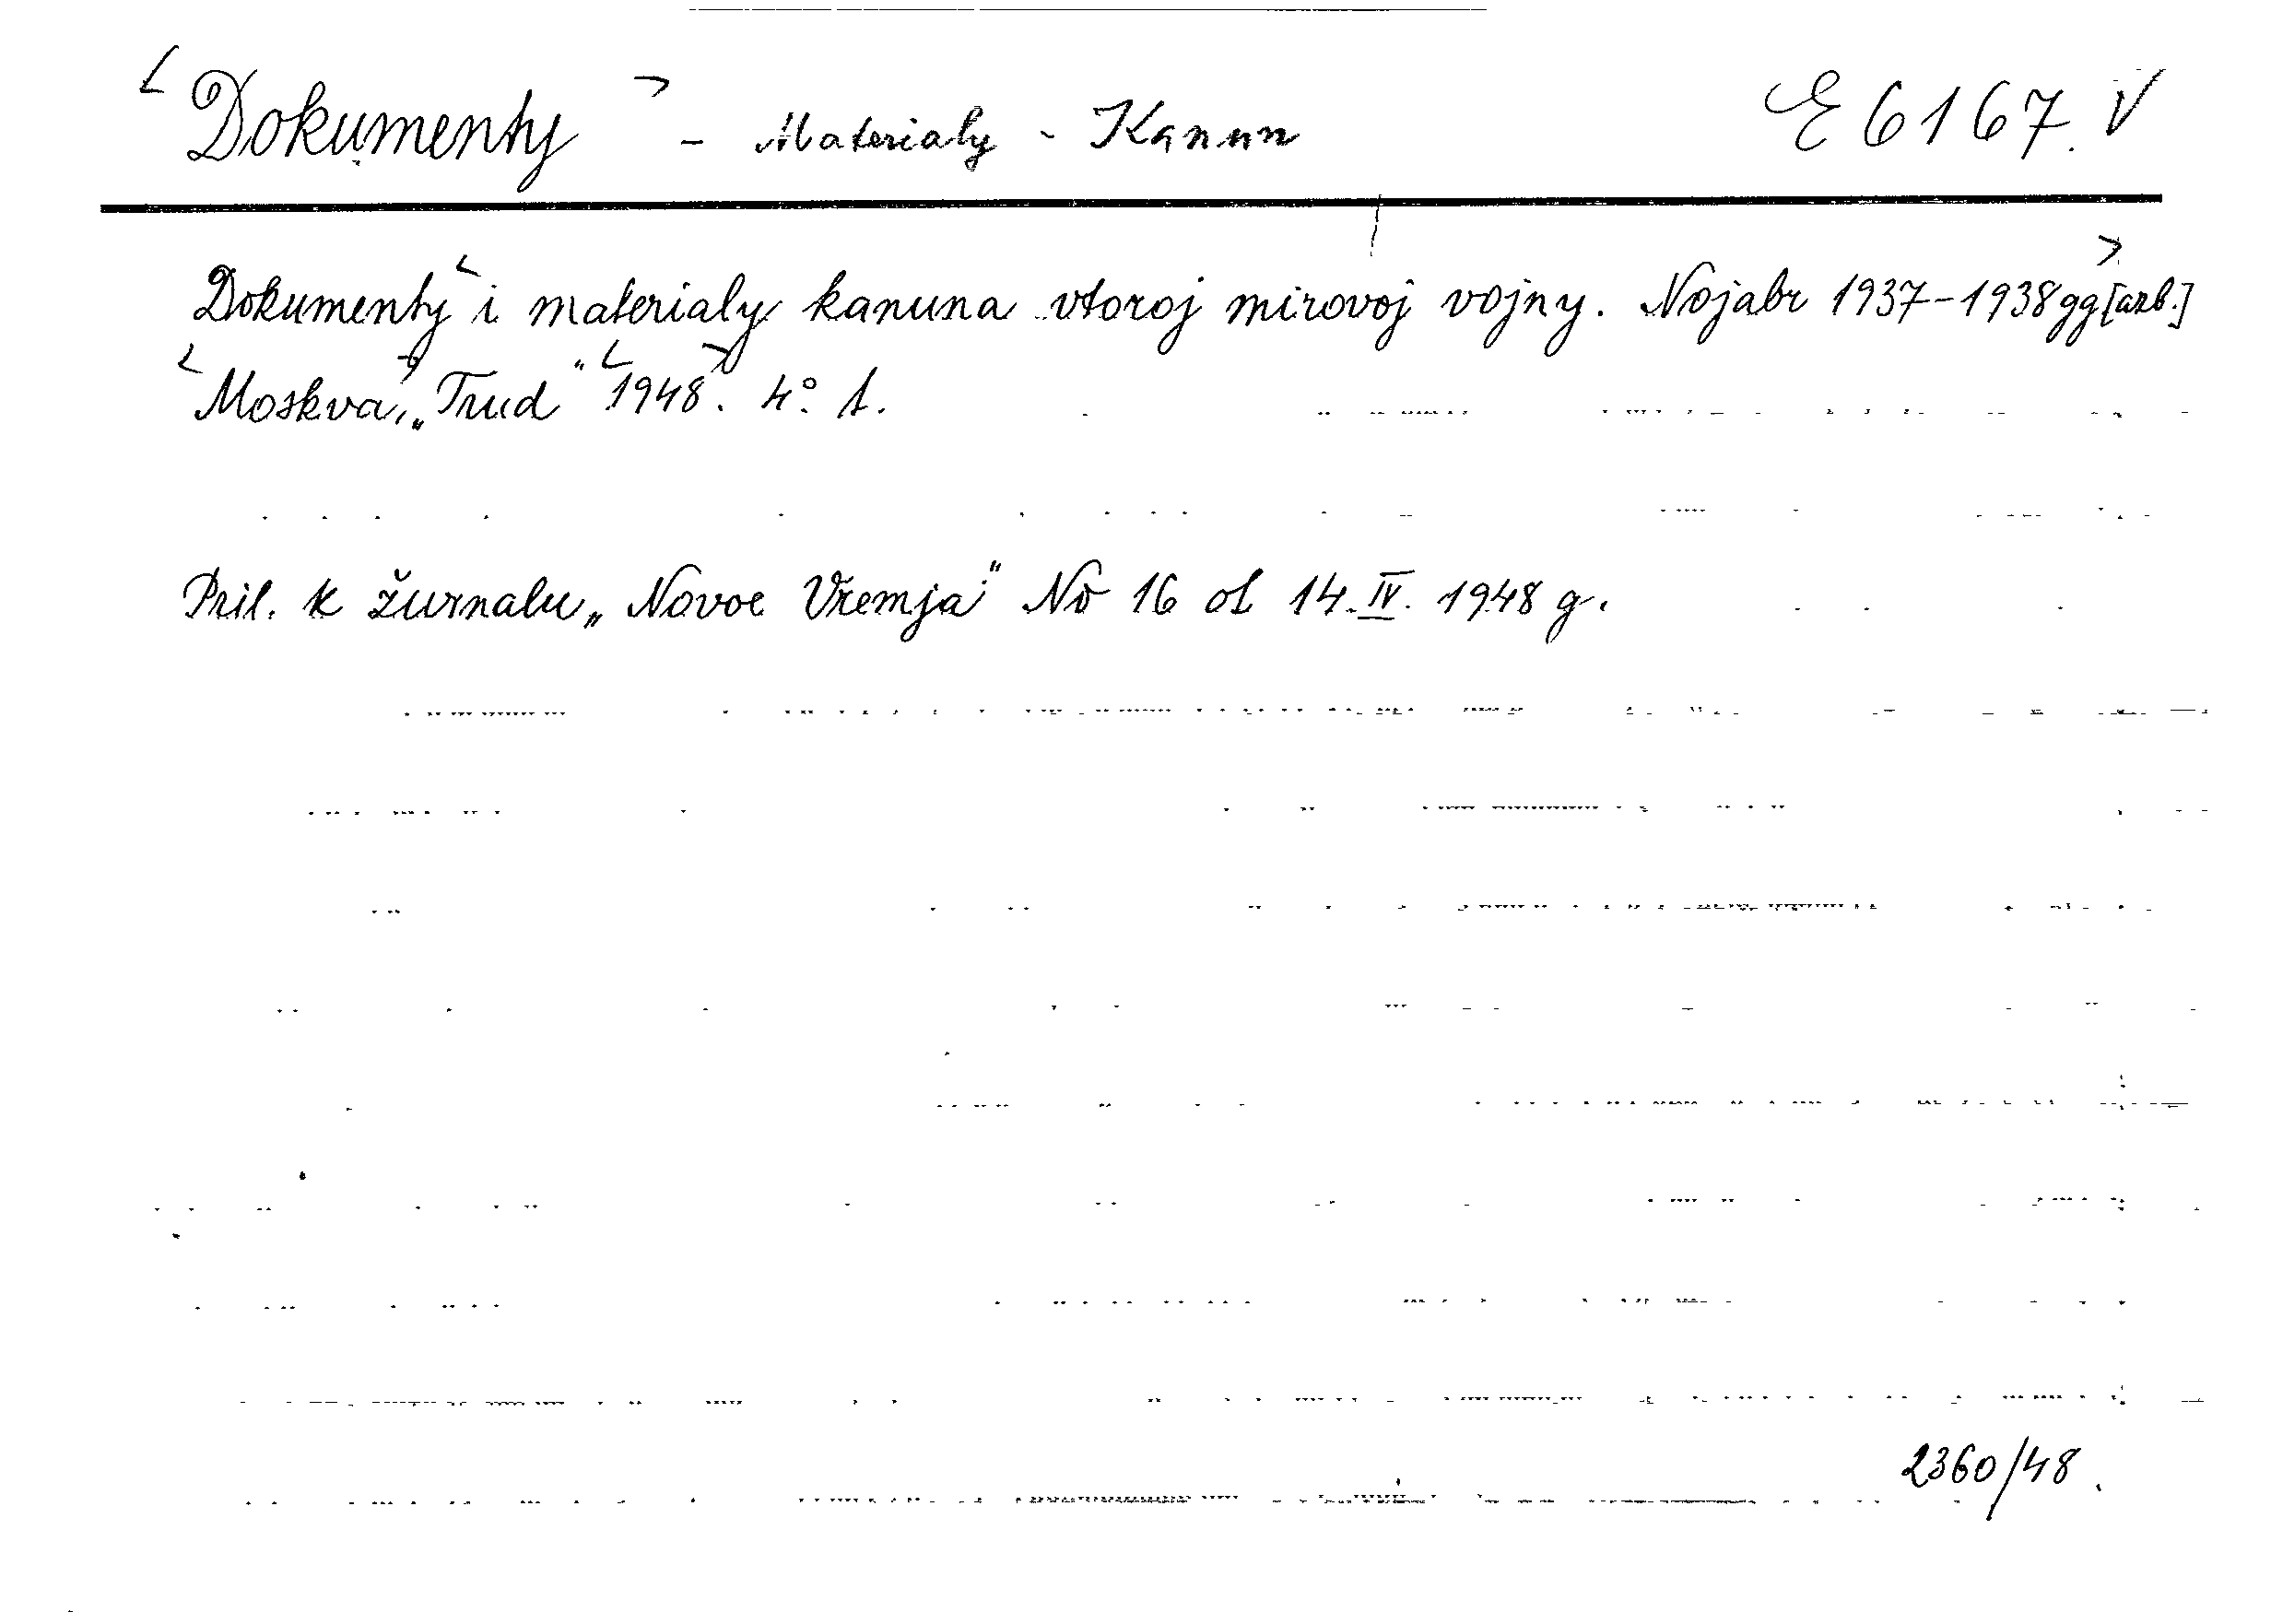 <Dokumenty> - Materialy - Kanun E 6167. V
Dokumenty <i materialy kanuna vtoroj mirovoj vojny. Nojabr 1937-1938 gg> [azb.]
<Moskva>, „Trud" <1948>. 4° 1.
Pril. k žurnalu „Novoe Vremja" No 16 ot 14. IV. 1948 g.
2360/48.